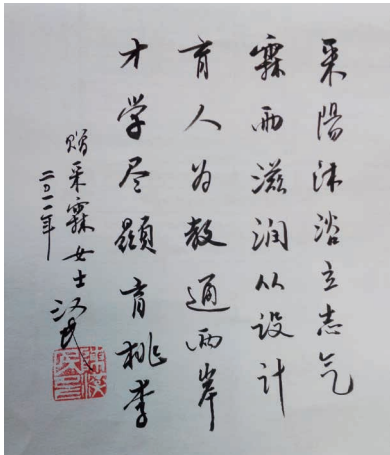 采陽沐浴立志气
霖雨滋润从设计
育人为教通两岸
才学尽顯育桃李
赠采霖女士 汉民
二〇一一年